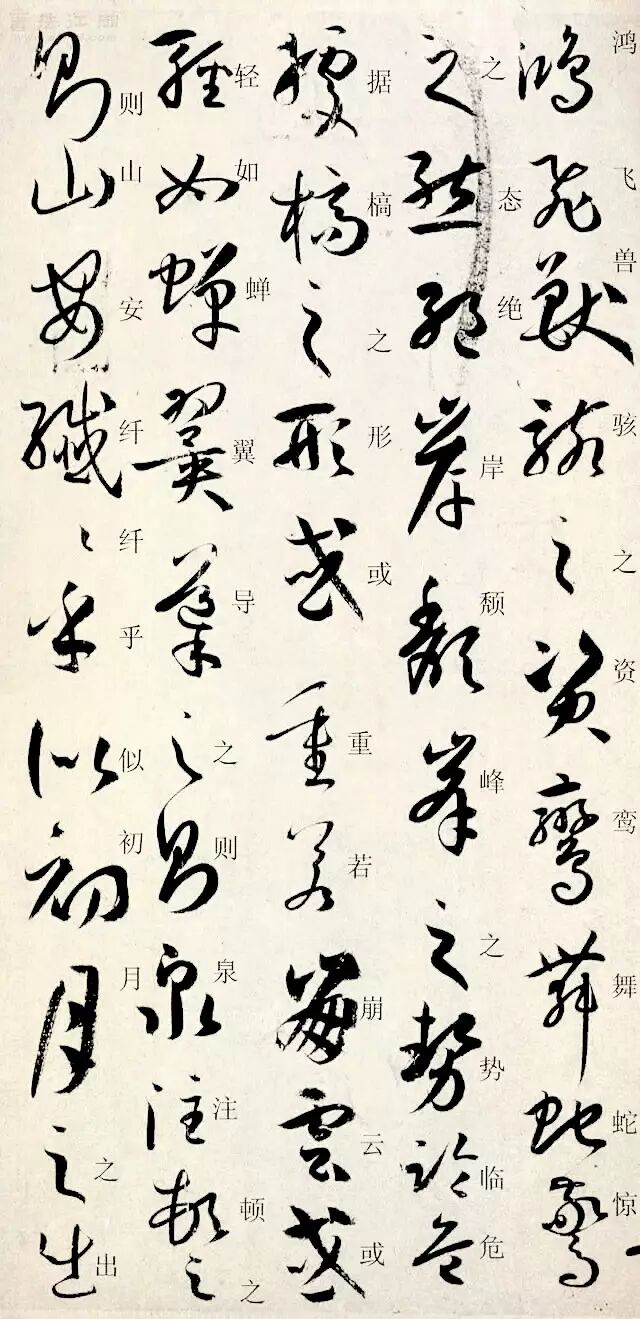 鸿飞兽骇之资鸾舞蛇惊
之态绝岸颓峰之势临危
据槁之形或重若崩云或
轻如蝉翼导之则泉注顿之
则山安纤纤乎似初月之出